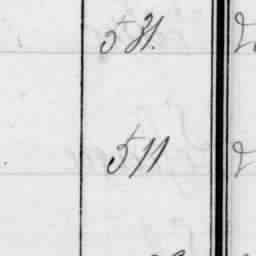 531.
511